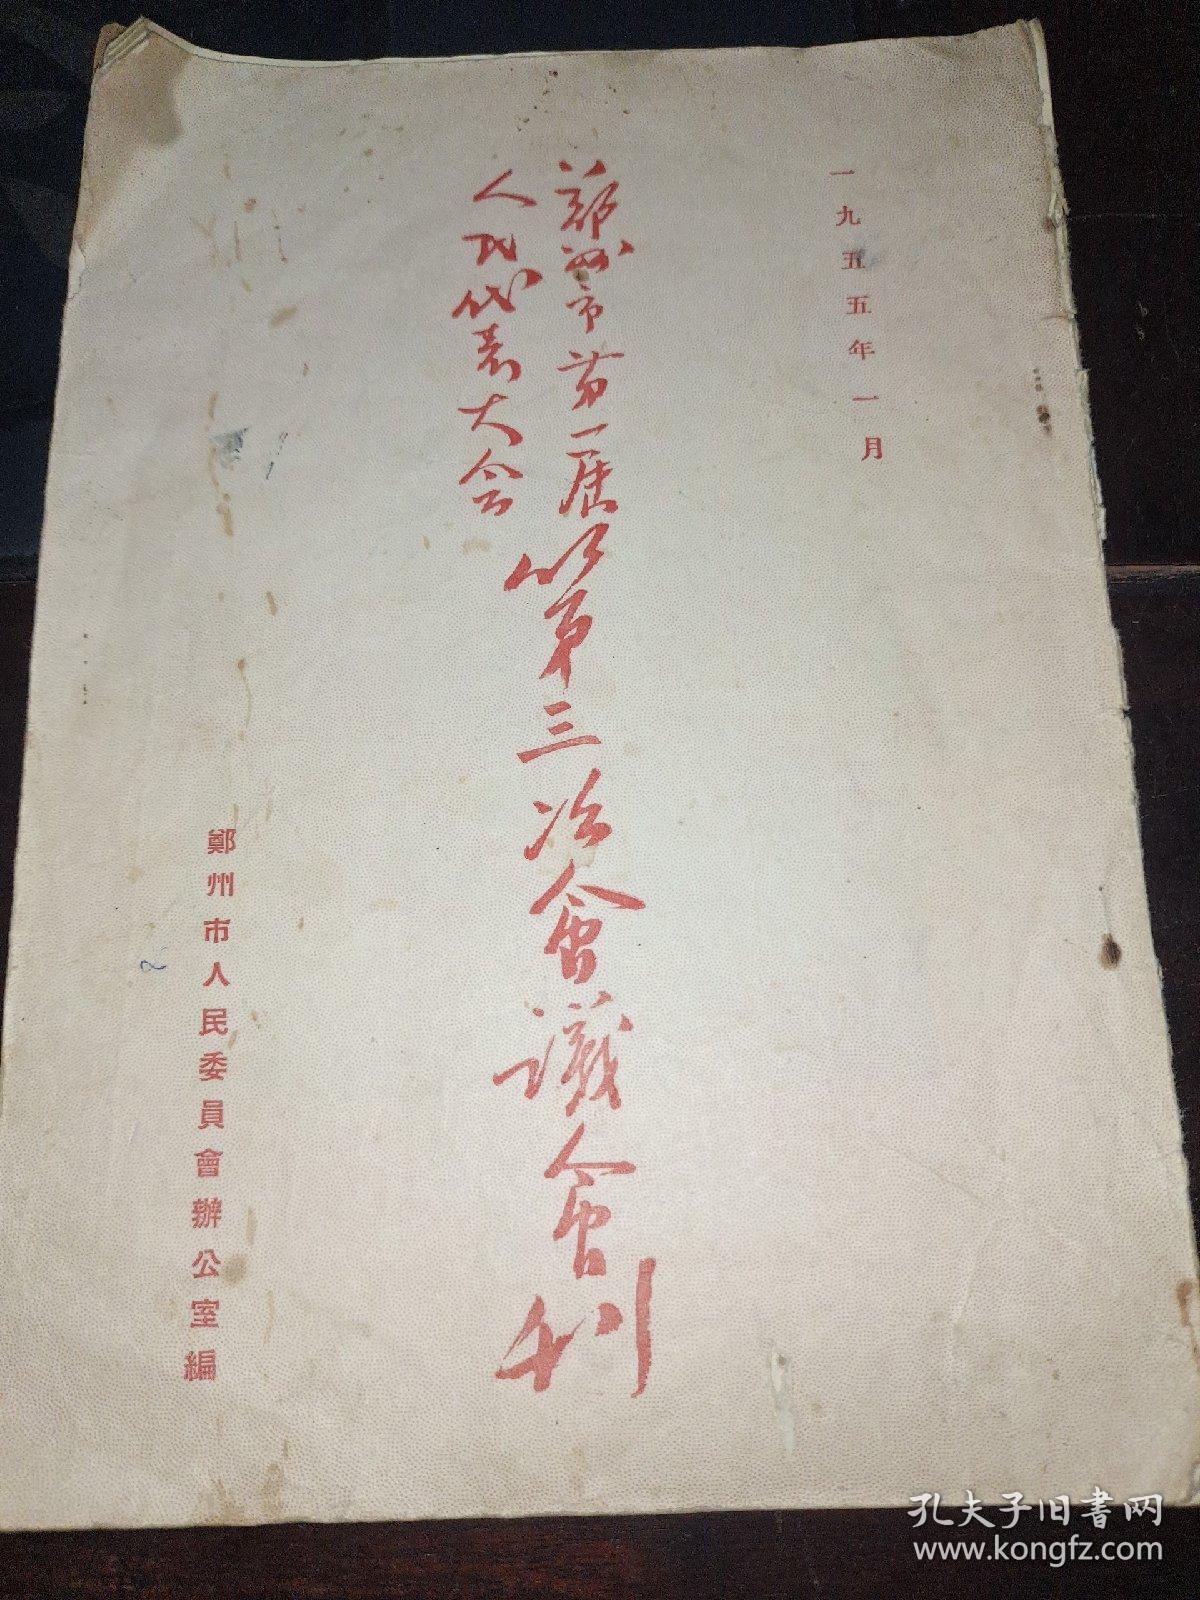 一九五五年一月
郑州市第一届
人民代表大会
第三次會議會刊
鄭州市人民委員會辦公室編
孔夫子旧书网
www.kongfz.com